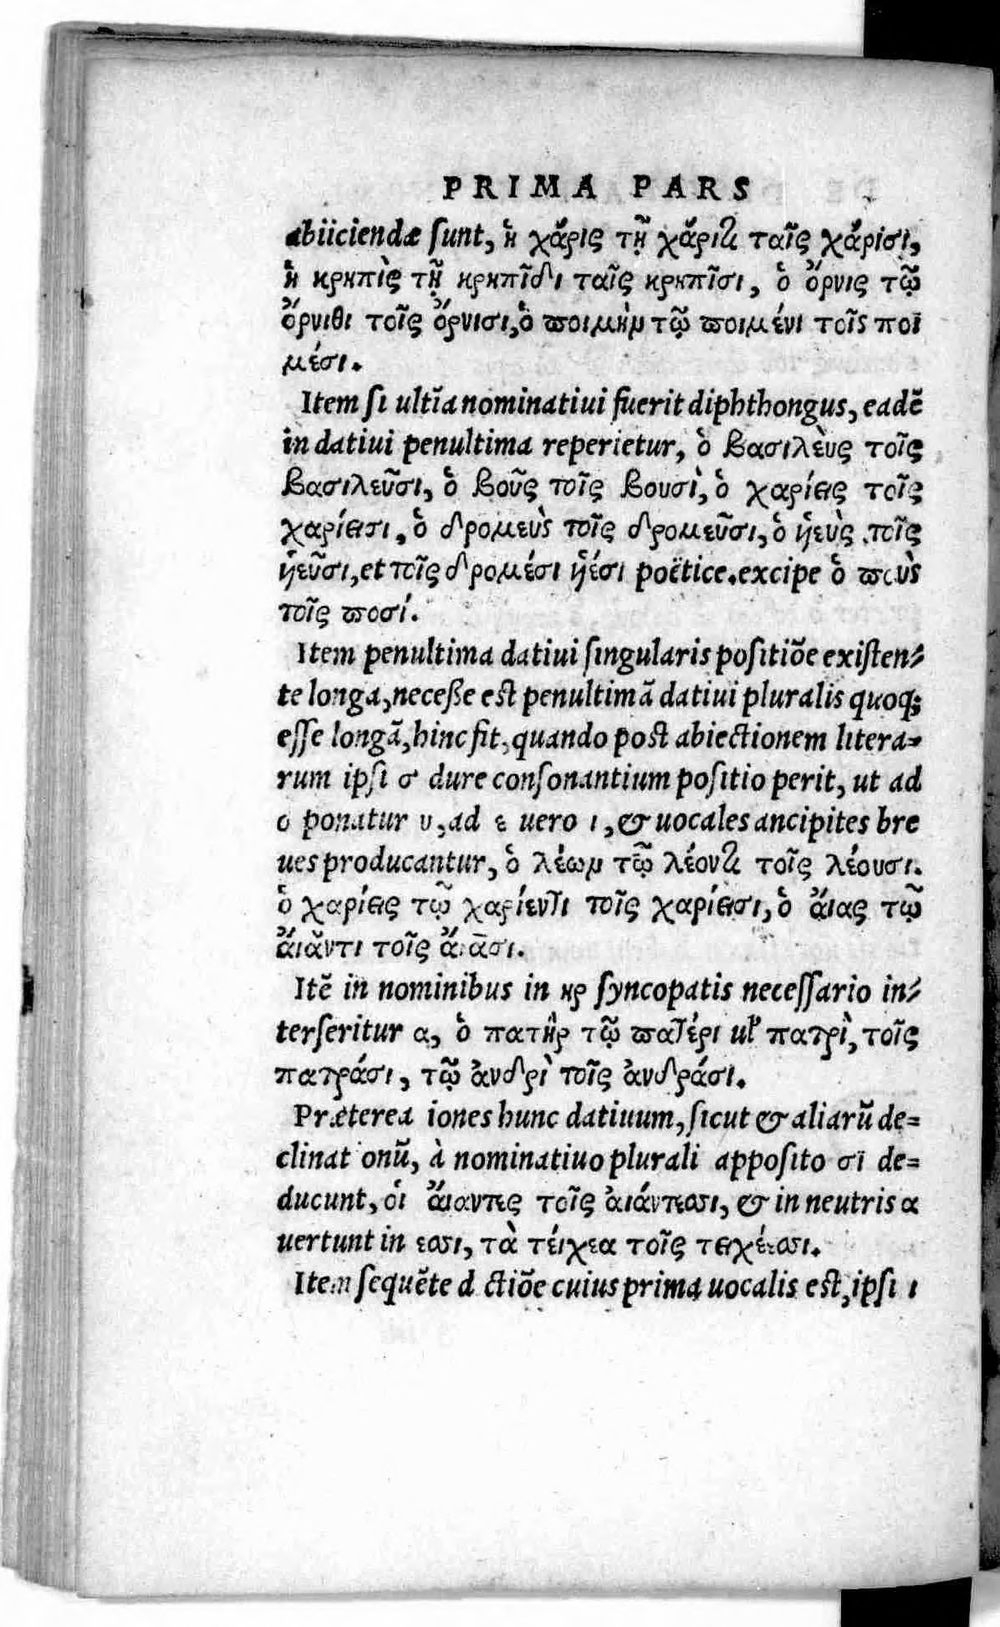 PRIMA PARS
abiiciendæ sunt, ἡ χάρις τῇ χάριτι ταῖς χάρισι,
ἡ κρηπὶς τῇ κρηπῖδι ταῖς κρηπῖσι, ὁ ὄρνις τῷ
ὄρνιθι τοῖς ὄρνισι, ὁ ποιμὴν τῷ ποιμένι τοῖς ποι
μέσι.
Item si ultĩa nominatiui fuerit diphthongus, eadẽ
in datiui penultima reperietur, ὁ βασιλεὺς τοῖς
βασιλεῦσι, ὁ βοῦς τοῖς βουσὶ, ὁ χαρίεις τοῖς
χαρίεισι, ὁ δρομεὺς τοῖς δρομεῦσι, ὁ υἱεὺς τοῖς
υἱεῦσι, et τοῖς δρομέσι υἱέσι poëtice. excipe ὁ ποὺς
τοῖς ποσί.
Item penultima datiui singularis positiõe existen-
te longa, necesse est penultimã datiui pluralis quoq;
esse longã, hinc fit, quando post abiectionem litera-
rum ipsi σ dure consonantium positio perit, ut ad
ο ponatur υ, ad ε uero ι, & uocales ancipites bre
ues producantur, ὁ λέων τῷ λέοντι τοῖς λέουσι.
ὁ χαρίεις τῷ χαρίεντι τοῖς χαρίεισι, ὁ ἄιας τῷ
ἄιαντι τοῖς ἄιασι.
Itẽ in nominibus in ηρ syncopatis necessario in-
terseritur α, ὁ πατὴρ τῷ πατέρι uľ πατρὶ, τοῖς
πατράσι, τῷ ἀνδρὶ τοῖς ἀνδράσι.
Præterea iones hunc datiuum, sicut & aliarũ de-
clinationũ, à nominatiuo plurali apposito σι de-
ducunt, οἱ ἄιαντες τοῖς ἀιάντεσσι, & in neutris α
uertunt in εσσι, τὰ τείχεα τοῖς τειχέεσσι.
Item sequẽte dictiõe cuius prima uocalis est, ipsi ι